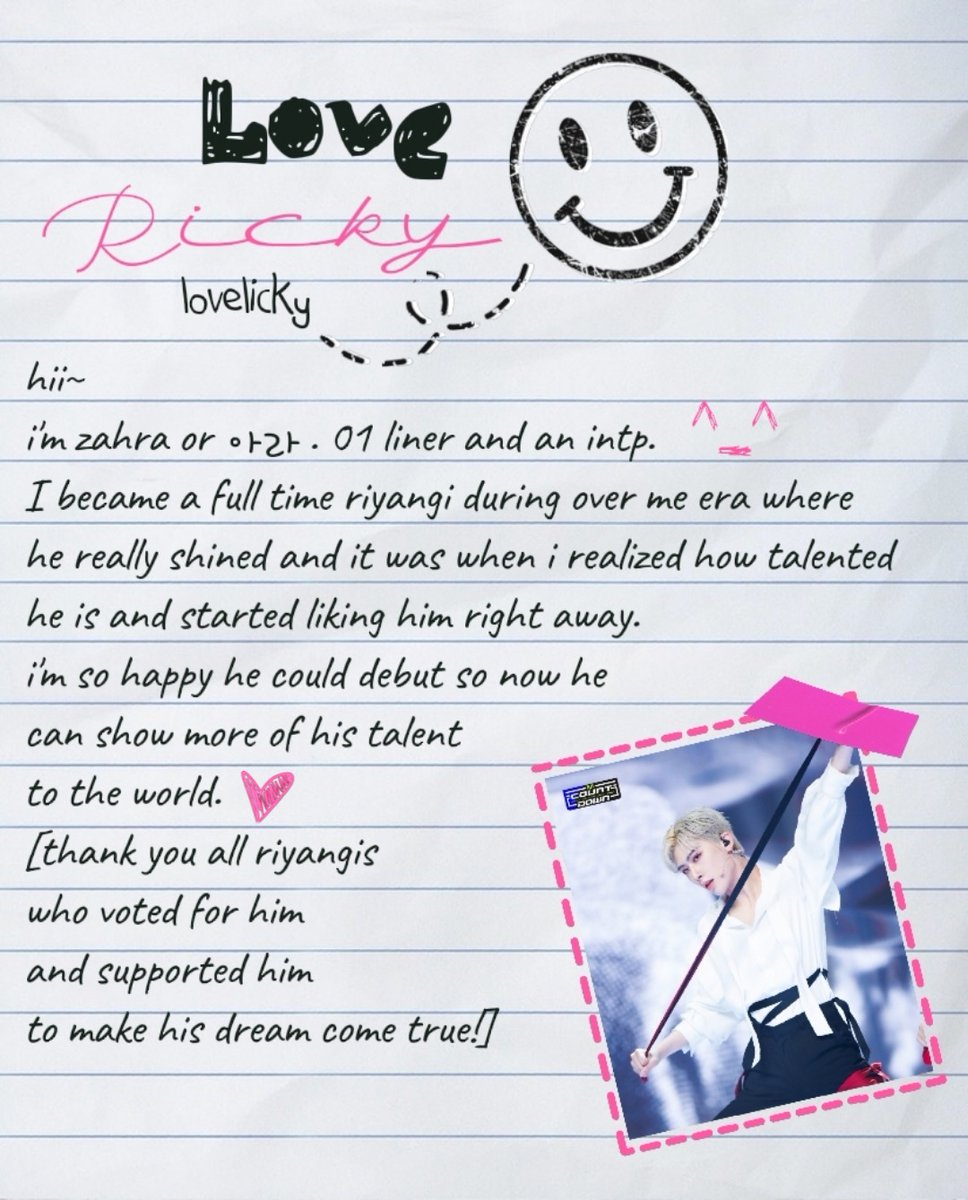 Love
Ricky
lovelicky
hii~
i'm zahra or 아라 . 01 liner and an intp. ^_^
I became a full time riyangi during over me era where
he really shined and it was when i realized how talented
he is and started liking him right away.
i'm so happy he could debut so now he
can show more of his talent
to the world.
[thank you all riyangis
who voted for him
and supported him
to make his dream come true!]
M
COUNT
DOWN